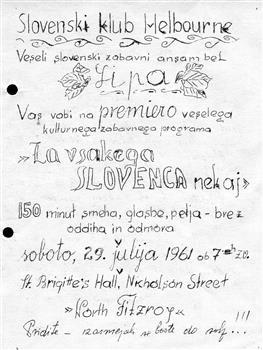 Slovenski klub Melbourne
Veseli slovenski zabavni ansambel
"Lipa"
Vas vabi na premiero veselega
kulturnega zabavnega programa
"Za vsakega
SLOVENCA nekaj"
150 minut smeha, glasbe, petja - brez
oddiha in odmora
soboto, 29. julija 1961 ob 7
St. Brigitte's Hall, Nicholson Street
"North Fitzroy"
Pridite - zasmejali se boste do solz...!!!